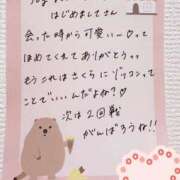 はじめましてさん
会った時から可愛いー♡って
ほめてくれてありがとうっっ
もうこれはさくらにゾッコンって
ことで‥‥んだよね？♡
次は2回戦
がんばろうね!!